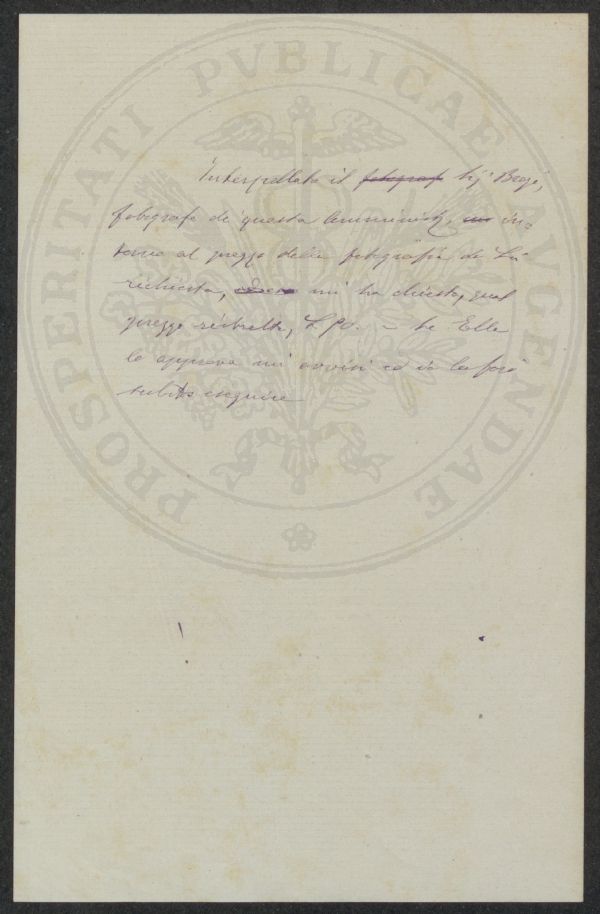 PROSPERITATI PVBLICAE AVGENDAE
Interpellato il fotografo Sig. Brogi,
fotografo di questa Amministr., in-
torno al prezzo della fotografia da Lei
richiesta, mi ha chiesto, qual
prezzo ristretto, L. — Se Ella
lo approva mi avvisi ed io la farò
subito eseguire